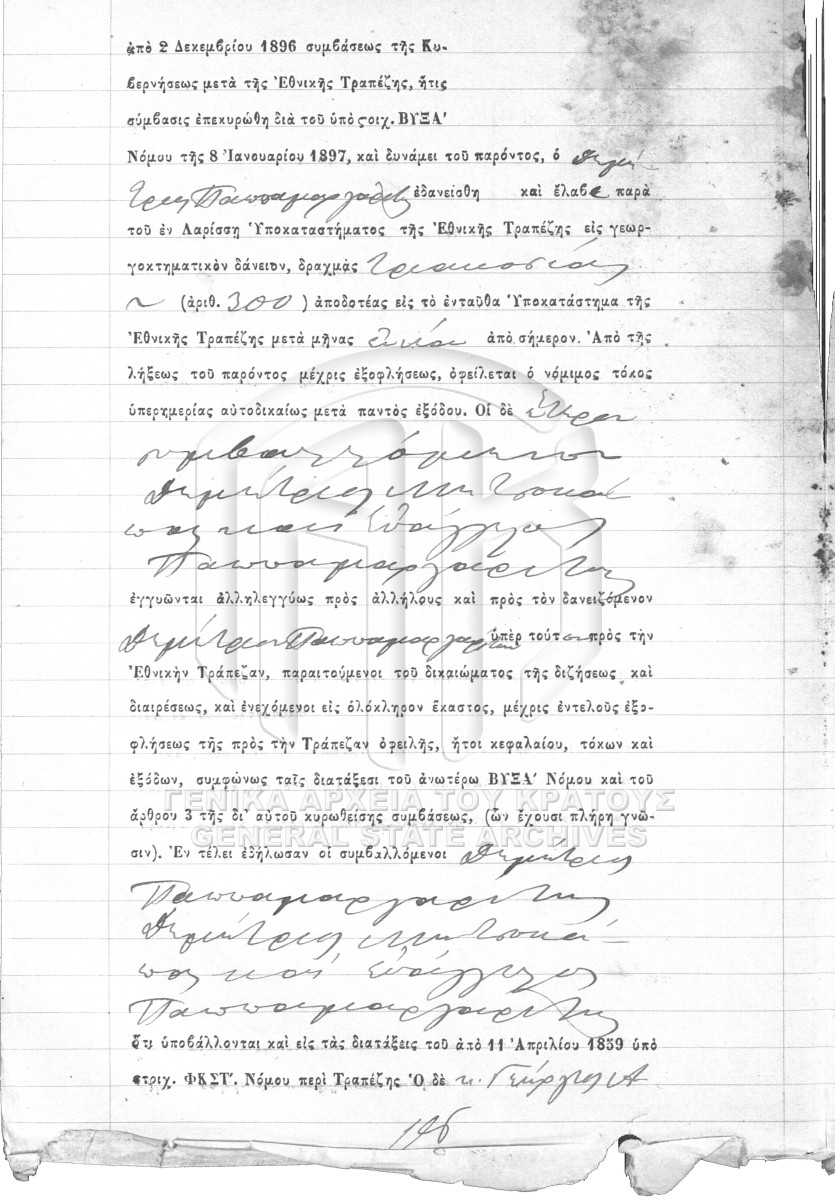 ἀπὸ 2 Δεκεμβρίου 1896 συμβάσεως τῆς Κυ-
βερνήσεως μετὰ τῆς Ἐθνικῆς Τραπέζης, ἥτις
σύμβασις ἐπεκυρώθη διὰ τοῦ ὑπὸ ςοιχ. ΒΥΞΑʹ
Νόμου τῆς 8 Ἰανουαρίου 1897, καὶ δυνάμει τοῦ παρόντος, ὁ Δημή
τριος Παππαμαργαρίτης ἐδανείσθη καὶ ἔλαβε παρὰ
τοῦ ἐν Λαρίσσῃ Ὑποκαταστήματος τῆς Ἐθνικῆς Τραπέζης εἰς γεωρ-
γοκτηματικὸν δάνειον, δραχμὰς τριακοσίας
~ (ἀριθ. 300) ἀποδοτέας εἰς τὸ ἐνταῦθα Ὑποκατάστημα τῆς
Ἐθνικῆς Τραπέζης μετὰ μῆνας ἐννέα ἀπὸ σήμερον. Ἀπὸ τῆς
λήξεως τοῦ παρόντος μέχρις ἐξοφλήσεως, ὀφείλεται ὁ νόμιμος τόκος
ὑπερημερίας αὐτοδικαίως μετὰ παντὸς ἐξόδου. Οἱ δὲ ἕτεροι
συμβαλλόμενοι
Δημήτριος Μητσοκά
πας καὶ Εὐάγγελος
Παππαμαργαρίτης
ἐγγυῶνται ἀλληλεγγύως πρὸς ἀλλήλους καὶ πρὸς τὸν δανειζόμενον
Δημήτριον Παππαμαργαρίτην ὑπὲρ τούτου πρὸς τὴν
Ἐθνικὴν Τράπεζαν, παραιτούμενοι τοῦ δικαιώματος τῆς διζήσεως καὶ
διαιρέσεως, καὶ ἐνεχόμενοι εἰς ὁλόκληρον ἕκαστος, μέχρις ἐντελοῦς ἐξο-
φλήσεως τῆς πρὸς τὴν Τράπεζαν ὀφειλῆς, ἤτοι κεφαλαίου, τόκων καὶ
ἐξόδων, συμφώνως ταῖς διατάξεσι τοῦ ἀνωτέρω ΒΥΞΑʹ Νόμου καὶ τοῦ
ΓΕΝΙΚΑ ΑΡΧΕΙΑ ΤΟΥ ΚΡΑΤΟΥΣ
ἄρθρου 3 τῆς δι᾽ αὐτοῦ κυρωθείσης συμβάσεως, (ὧν ἔχουσι πλήρη γνῶ-
GENERAL STATE ARCHIVES
σιν). Ἐν τέλει ἐδήλωσαν οἱ συμβαλλόμενοι Δημήτριος
Παππαμαργαρίτης
Δημήτριος Μητσοκά-
πας καὶ Εὐάγγελος
Παππαμαργαρίτης
ὅτι ὑποβάλλονται καὶ εἰς τὰς διατάξεις τοῦ ἀπὸ 11 Ἀπριλίου 1859 ὑπὸ
στοιχ. ΦΚΣΤʹ. Νόμου περὶ Τραπέζης Ὁ δὲ κ. Γεώργιος Α